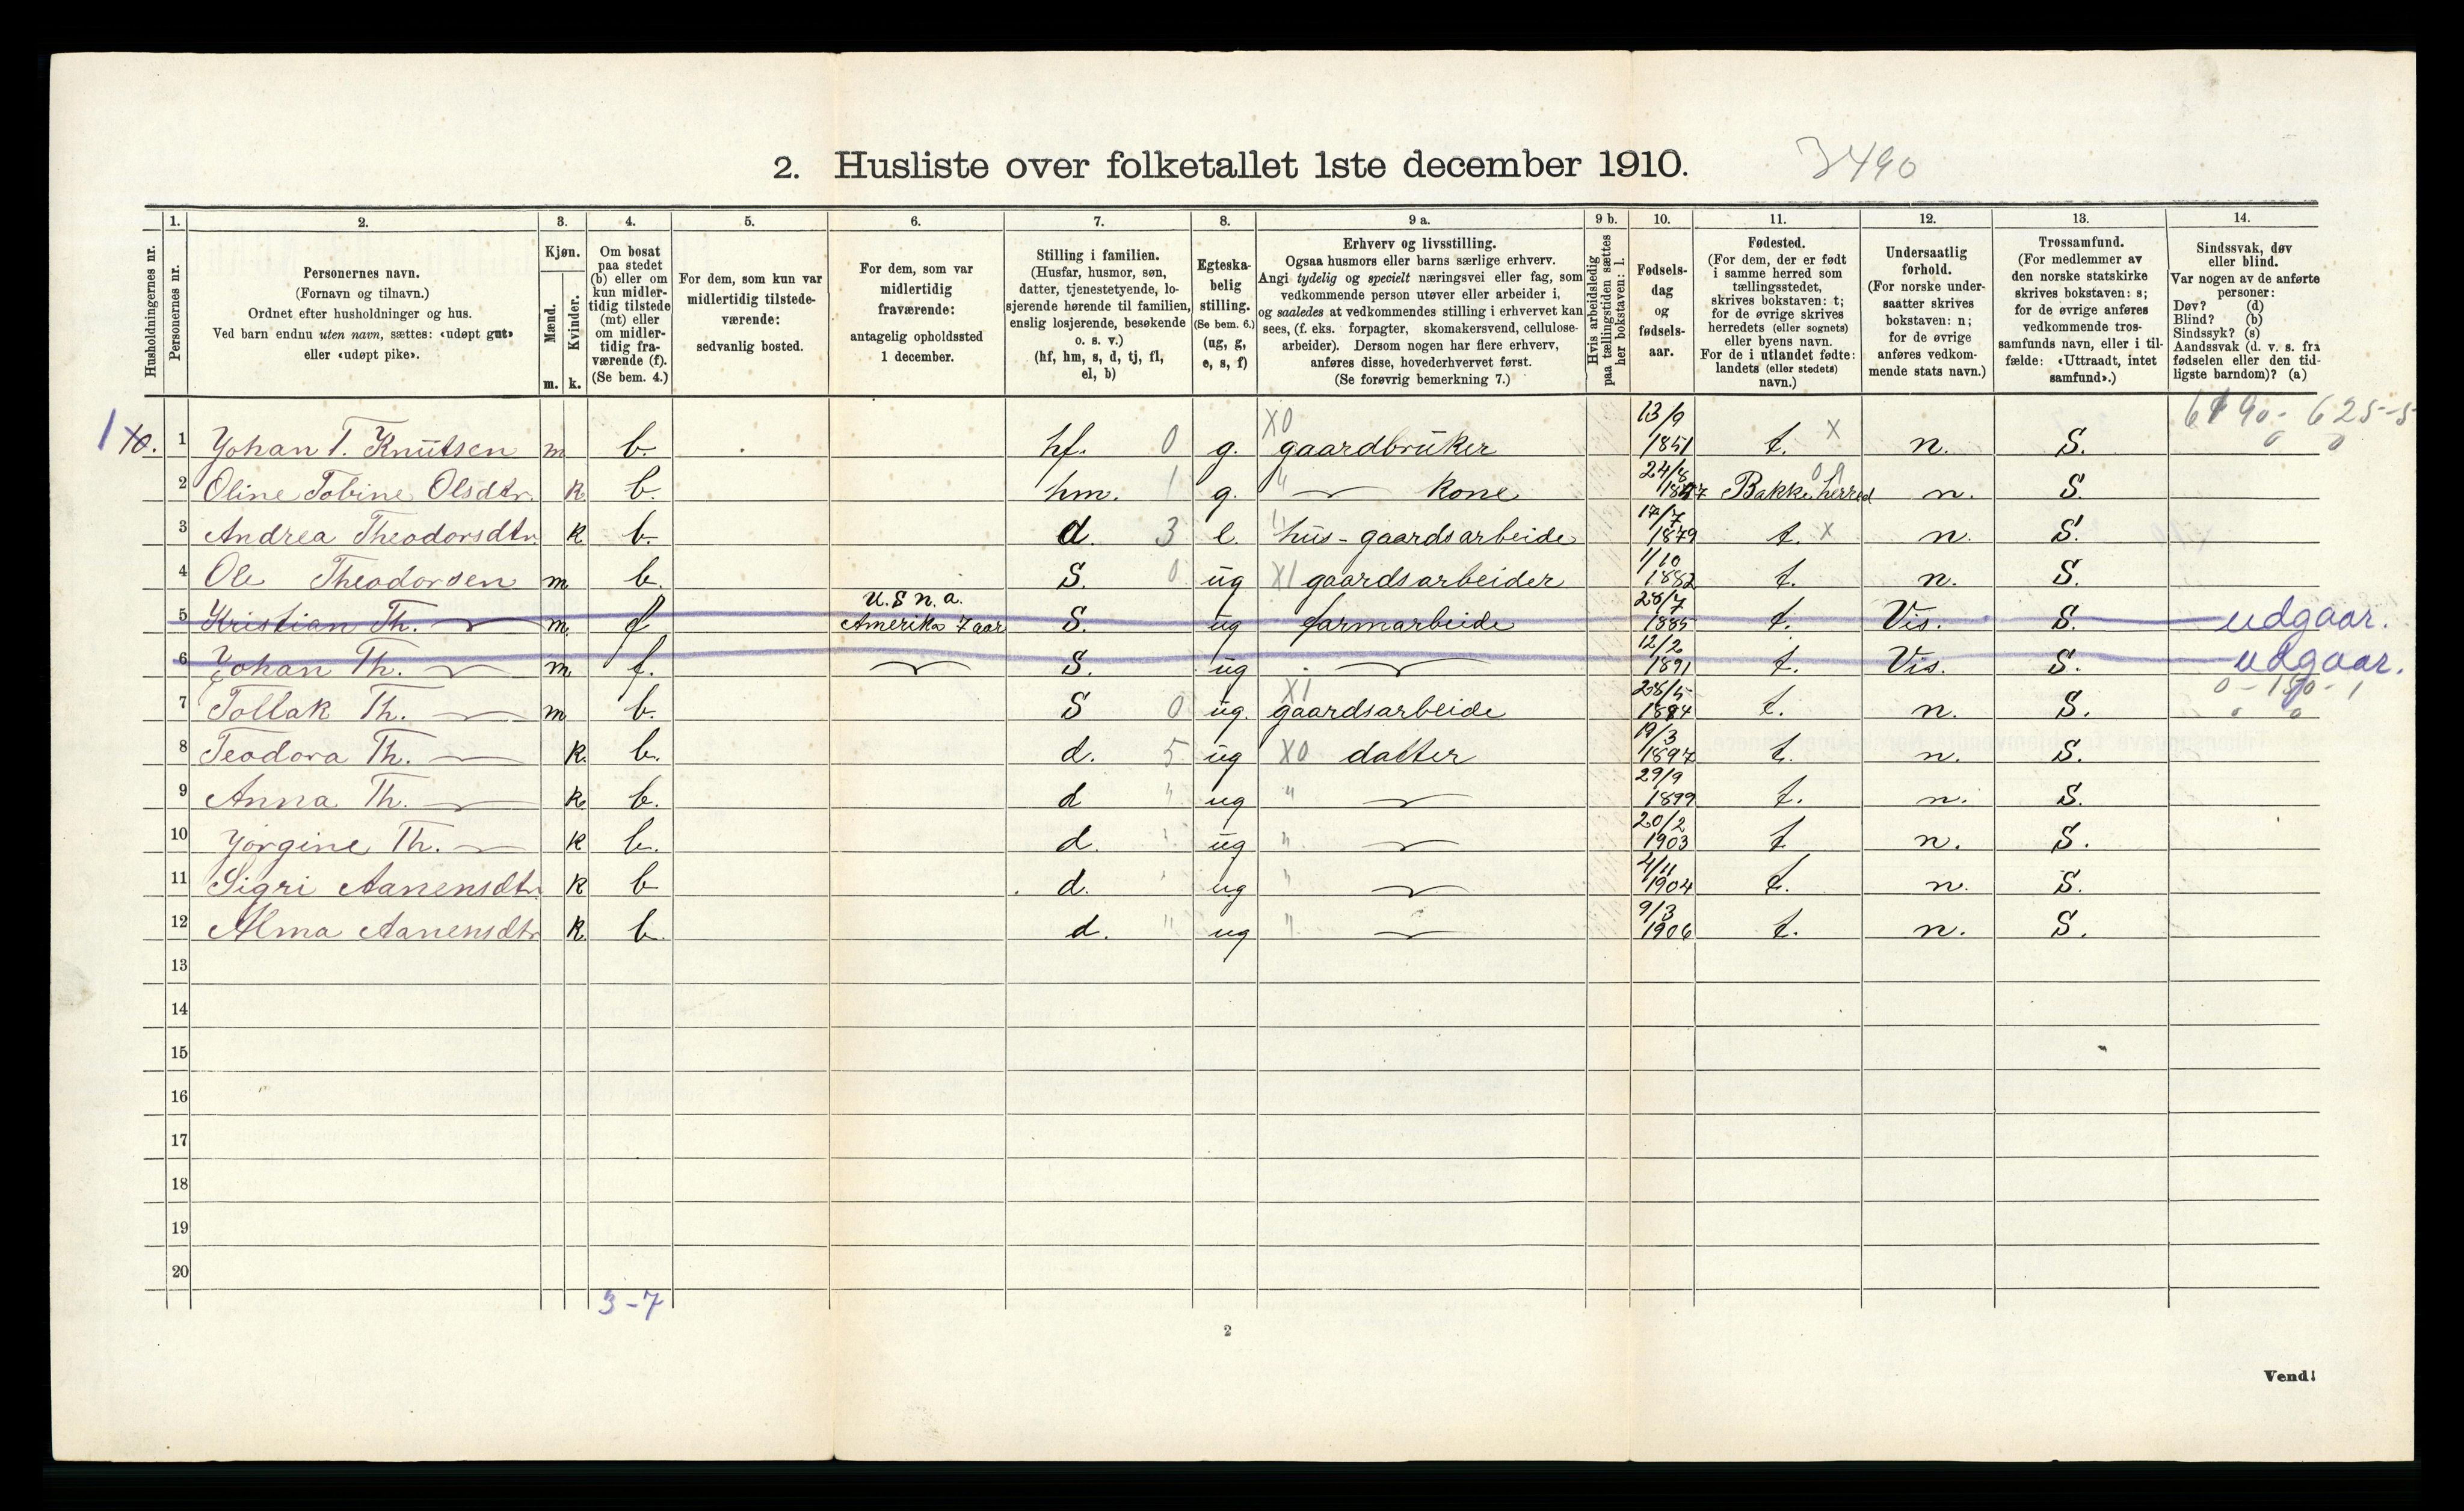 2. Husliste over folketallet 1ste december 1910.
3490
1. 2. 3. 4. 5. 6. 7. 8. 9 a. 9 b. 10. 11. 12. 13. 14.
Husholdningernes nr.
Personernes nr.
Personernes navn.
(Fornavn og tilnavn.)
Ordnet efter husholdninger og hus.
Ved barn endnu uten navn, sættes: «udøpt gut»
eller «udøpt pike».
Kjøn.
Mænd.
Kvinder.
m. k.
Om bosat
paa stedet
(b) eller om
kun midler-
tidig tilstede
(mt) eller
om midler-
tidig fra-
værende (f).
(Se bem. 4.)
For dem, som kun var
midlertidig tilstede-
værende:
sedvanlig bosted.
For dem, som var
midlertidig
fraværende:
antagelig opholdssted
1 december.
Stilling i familien.
(Husfar, husmor, søn,
datter, tjenestetyende, lo-
sjerende hørende til familien,
enslig losjerende, besøkende
o. s. v.)
(hf, hm, s, d, tj, fl,
el, b)
Egteska-
belig
stilling.
(Se bem. 6.)
(ug, g,
e, s, f)
Erhverv og livsstilling.
Ogsaa husmors eller barns særlige erhverv.
Angi tydelig og specielt næringsvei eller fag, som
vedkommende person utøver eller arbeider i,
og saaledes at vedkommendes stilling i erhvervet kan
sees, (f. eks. forpagter, skomakersvend, cellulose-
arbeider). Dersom nogen har flere erhverv,
anføres disse, hovederhvervet først.
(Se forøvrig bemerkning 7.)
Hvis arbeidsledig
paa tællingstiden sættes
her bokstaven: l.
Fødsels-
dag
og
fødsels-
aar.
Fødested.
(For dem, der er født
i samme herred som
tællingsstedet,
skrives bokstaven: t;
for de øvrige skrives
herredets (eller sognets)
eller byens navn.
For de i utlandet fødte:
landets (eller stedets)
navn.)
Undersaatlig
forhold.
(For norske under-
saatter skrives
bokstaven: n;
for de øvrige
anføres vedkom-
mende stats navn.)
Trossamfund.
(For medlemmer av
den norske statskirke
skrives bokstaven: s;
for de øvrige anføres
vedkommende tros-
samfunds navn, eller i til-
fælde: «Uttraadt, intet
samfund».)
Sindssvak, døv
eller blind.
Var nogen av de anførte
personer:
Døv? (d)
Blind? (b)
Sindssyk? (s)
Aandssvak (d. v. s. fra
fødselen eller den tid-
ligste barndom)? (a)
1 Yohan T. Knutsen m b. hf. 0 g. X0 gaardbruker 13/9 1851 t. X n. S.
2 Oline Tobine Olsdtr. k b. hm. 1 g. " — kone 24/8 1857 Bakke herred n. S.
3 Andrea Theodorsdtr. k b. d. 3 e. " hus-gaardsarbeide 17/7 1879 t. X n. S.
4 Ole Theodorsen m b. S. 0 ug X1 gaardsarbeider 1/10 1882 t. n. S.
5 Kristian Th. — m. f U.S.n.a. Amerika 7 aar S. ug farmarbeide 28/7 1885 t. Vis. S. udgaar.
6 Johan Th. — m f. — S. ug — 12/2 1891 t. Vis. S. udgaar.
7 Tollak Th. — m b. S 0 ug. X1 gaardsarbeide 28/5 1894 t. n. S.
8 Teodora Th. — k. b. d. 5 ug X0 datter 19/3 1897 t. n. S.
9 Anna Th. — k. b. d " ug " — 29/9 1899 t. n. S.
10 Yørgine Th. — k b. d. " ug " — 20/2 1903 t n. S.
11 Sigri Aanensdtr. k b d. " ug " — 4/11 1904 t. n. S.
12 Alma Aanensdtr k b. d. " ug " — 9/3 1906 t. n. S.
13
14
15
16
17
18
19
20
3-7
2
Vend!